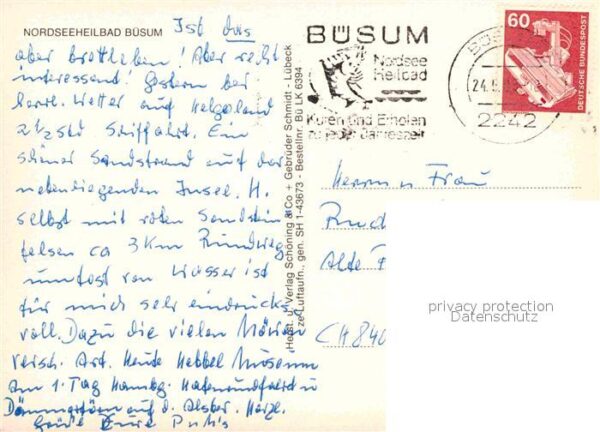 NORDSEEHEILBAD BÜSUM
Ist das
aber Brettleben! Aber recht
interessant! Gestern bei
herrl. Wetter auf Helgoland
2 1/2 Std Schiffahrt. Ein
schöner Sandstrand auf der
nebenliegenden Insel. H.
selbst mit roten Sandstein
felsen ca 3 Km Rundweg
umtost von Wasser ist
für mich sehr eindrucks
voll. Dazu die vielen Möwen
versch. Art. Heute Hebbel Museum
Am 1. Tag Hambg. Hafenrundfahrt u
auf d. Alster. Herzl.
Grüße Eure
Herst. u. Verlag Schöning & Co + Gebrüder Schmidt - Lübeck
ze-Luftaufn., gen. SH 1-43673 - Bestellnr. Bü LK 6394
BÜSUM
Nordsee
Heilbad
Kuren und Erholen
zu jeder Jahreszeit
BÜS
24.
2242
60
DEUTSCHE BUNDESPOST
Herrn u Frau
Rud
Alte
CH 840
privacy protection
Datenschutz